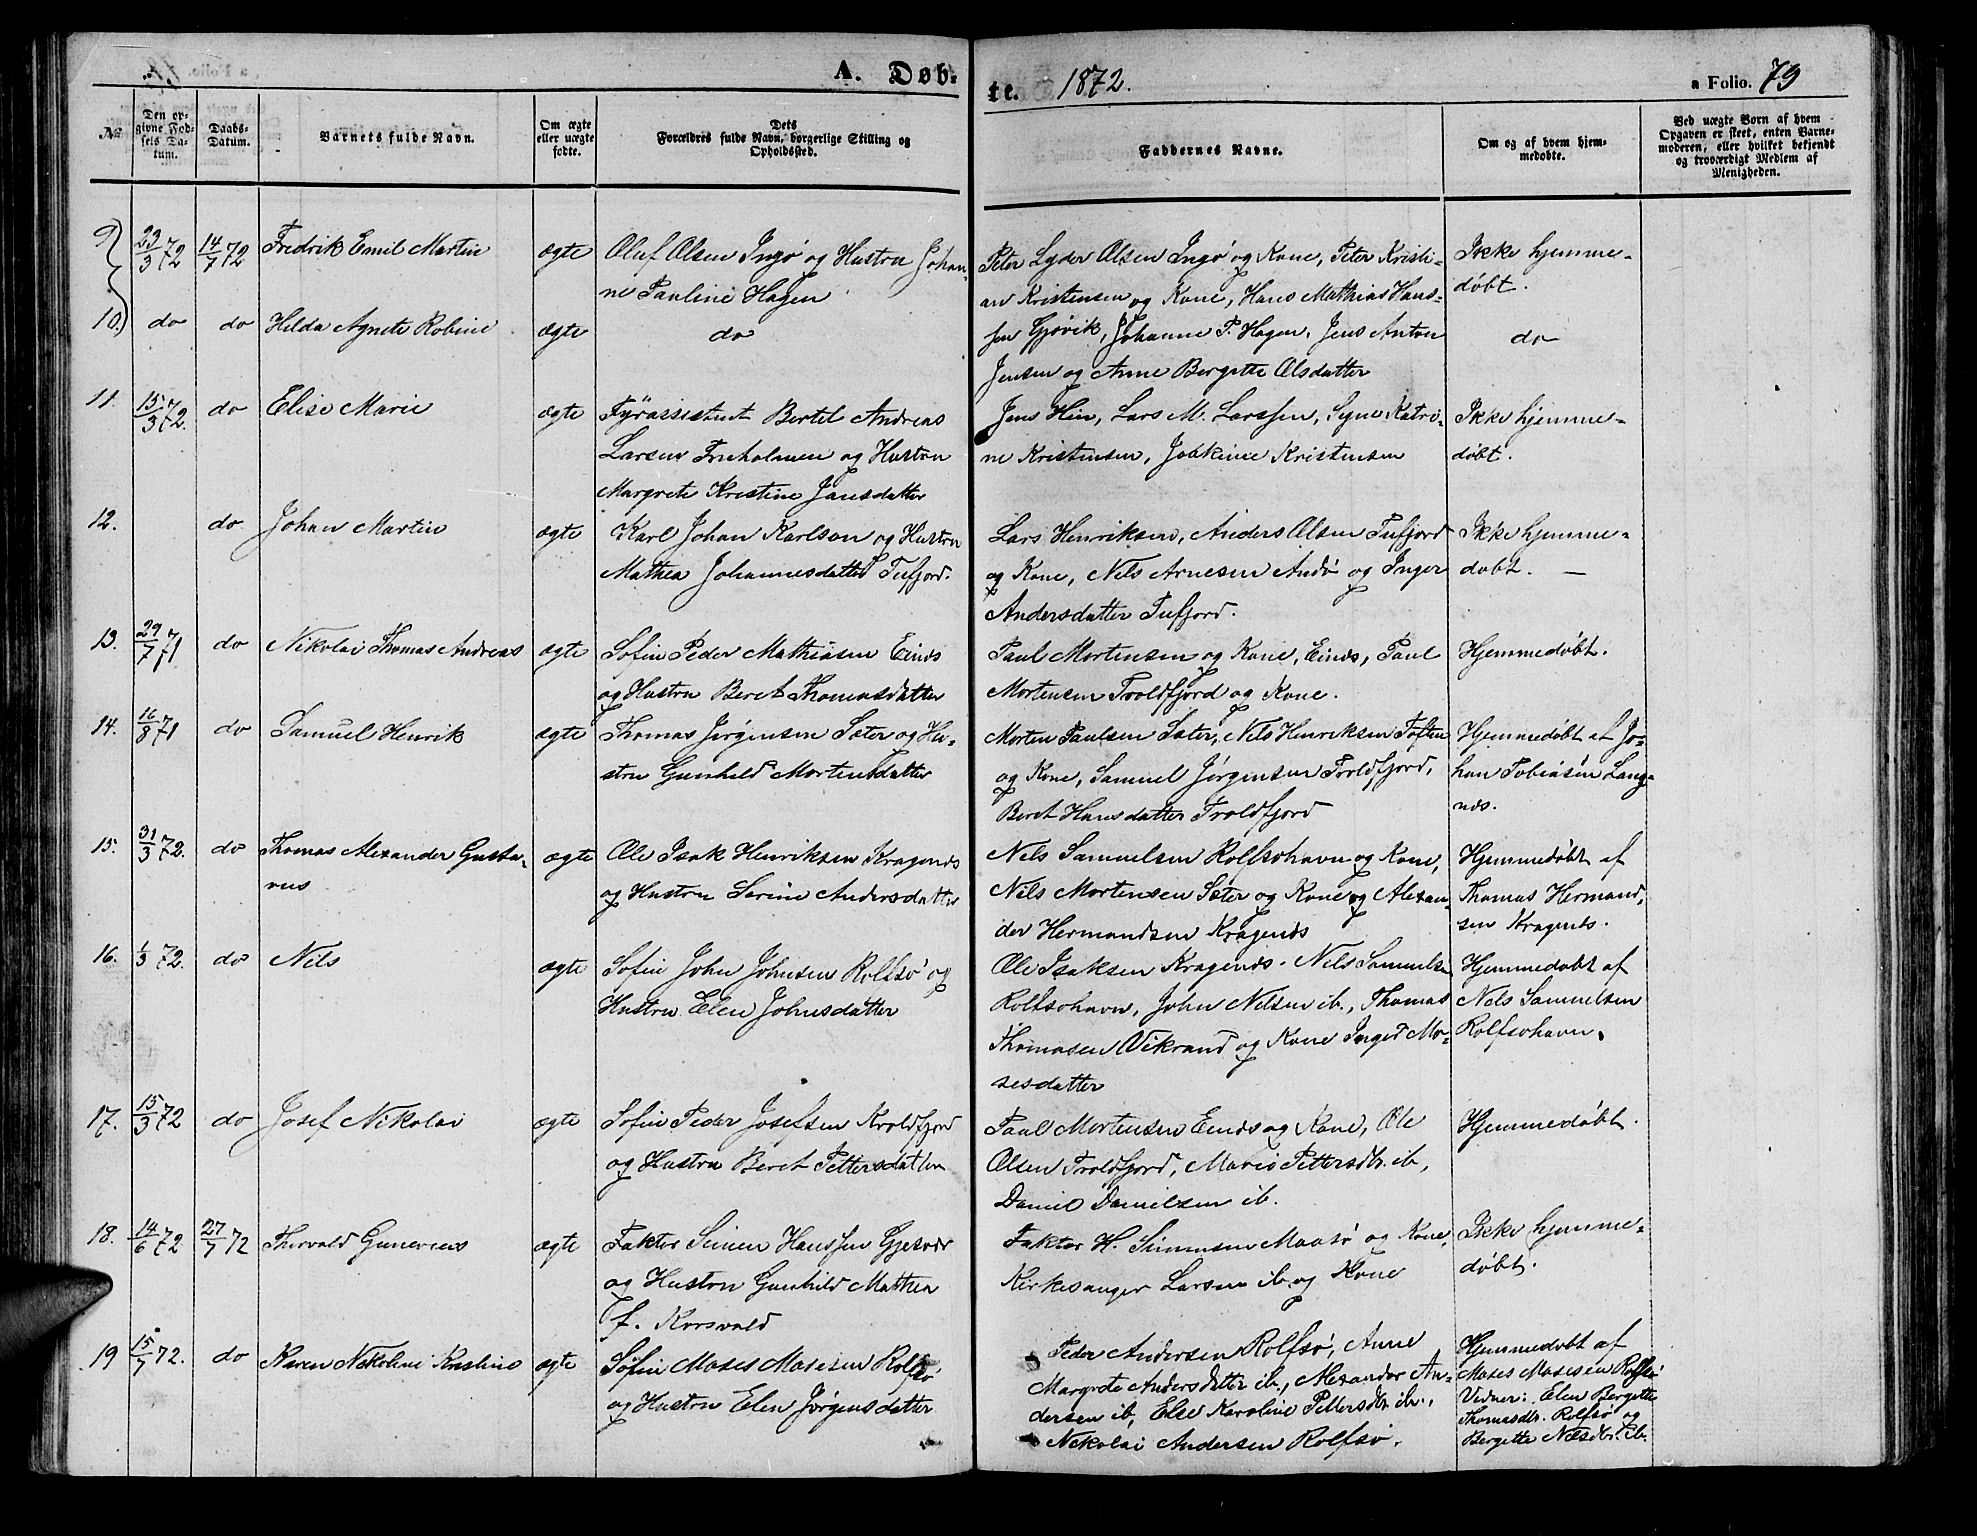 A. Døb-
te. 1872.
a Folio. 79
№
Den opgivne Fødsels Datum.
Daabs-Datum.
Barnets fulde Navn.
Om ægte eller uægte fødte.
Dets Forældres fulde Navn, borgerlige Stilling og Opholdssted.
Faddernes Navne.
Om og af hvem hjemmedøbte.
Ved uægte Born af hvem Opgaven er skeet, enten Barnemoderen, eller hvilket bekjendt og troværdigt Medlem af Menigheden.
9 23/3 72 14/7 72 Fredrik Emil Martin ægte Oluf Olsen Ingø og Hustru Johan-
ne Pauline Hagen
Peter Lyder Olsen Ingø og Kone, Peter Kristi-
an Kristensen og Kone, Hans Mathias Hans-
Ikke hjemme-
døbt.
10. do do Hilda Agnete Robine ægte do
sen Gjøvik, Johanne P. Hagen, Jens Anton
Jensen og Anne Bergitte Olsdatter
do
11. 15/3 72. do Elise Marie ægte Fyrassistent Bertel Andreas
Larsen Fruholmen og Hustru
Margrete Kristine Jansdatter
Jens Hin, Lars M. Larssen, Signe Katri-
ne Kristensen, Jokkine Kristensen
Ikke hjemme-
døbt.
12. do Johan Martin ægte Karl Johan Karlson og Hustru
Mathea Johannesdatter Tufjord.
Lars Henriksen, Anders Olsen Tufjord
og Kone, Nils Arnesen Andø og Inger
Andersdatter Tufjord.
Ikke hjemme-
døbt. —
13. 29/7 71 do Nikolai Thomas Andreas ægte Søfin Peder Mathiasen Einæs
og Hustru Beret Thomasdatter
Paul Mortensen og Kone, Einæs, Paul
Mortensen Troldfjord og Kone.
Hjemmedøbt.
14. 16/8 71 do Samuel Henrik ægte Thomas Jørgensen Sæter og Hu-
stru Gunhild Mortensdatter
Morten Paulsen Sæter, Nils Henriksen Toften
og Kone, Samuel Jørgensen Troldfjord,
Beret Hansdatter Troldfjord
Hjemmedøbt af Jo-
han Tobiasen Lang-
næs.
15. 31/3 72. do Thomas Alexander Gusta-
vus ægte Ole Isak Henriksen Kragenæs
og Hustru Serine Andersdatter
Nels Samuelsen Rolfsohavn og Kone,
Nils Mortensen Sæter og Kone og Alexan-
der Hermandsen Kragenæs
Hjemmedøbt af
Thomas Hermand,
sen Kragenæs.
16. 1/3 72. do Nils ægte Søfin John Johnsen Rolfsø og
Hustru Elen Johnsdatter
Ole Isaksen Kragenæs. Nils Samuelsen
Rolfsohavn, John Nilsen ib., Thomas
Thomasen Vikrand og Kone Inger Mo-
sesdatter
Hjemmedøbt af
Nels Samuelsen
Rolfsohavn.
17. 15/3 72 do Josef Nikolai ægte Søfin Peder Josefsen Troldfjord
og Hustru Beret Pettersdatter
Paul Mortensen Einæs og Kone, Ole
Olsen Troldfjord, Marie Pettersdtr. ib.,
Daniel Danielsen ib.
Hjemmedøbt.
18. 14/6 72 27/7 72 Thorvald Gunerius ægte Faktor Simen Hanssen Gjesvær
og Hustru Gunhild Mathea
f. Korsvold
Faktor H. Simonsen Maasø og Kone,
Kirkesanger Larsen ib. og Kone
Ikke hjemme-
døbt.
19 15/7 72. do Karen Nekoline Kristine ægte Søfin Moses Mosesen Rolfsø
og Hustru Elen Jørgensdatter
Peder Andersen Rolfsø, Anne
Margrete Andersdatter ib., Alexander An-
dersen ib, Else Karoline Pettersdtr. ib.,
Nekolai Andersen Rolfsø.
Hjemmedøbt af
Moses Mosesen Rolfsø
Vidner: Elen Bergitte
Thomasdtr. Rolfsø og
Bergitte Nilsdtr. ib.